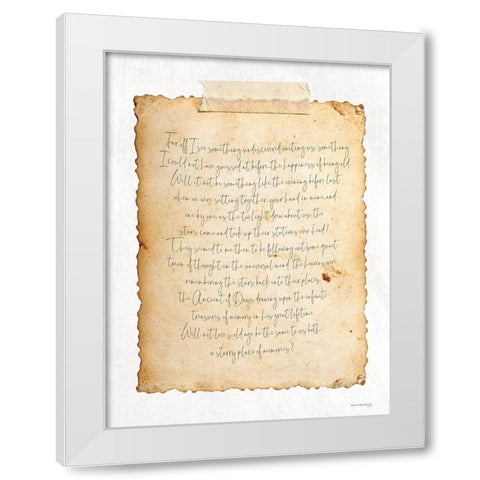 Far off I see something undiscovered waiting us, something
I could not have guessed at before, the happiness of being old.
Will it not be something like the evening before last
when we were sitting together, your hand in mine, and
one by one, as the twilight drew about us, the
stars came and took up their stations overhead?
They seemed to me then to be following out some quiet
train of thought in the universal mind, the heavens were
remembering the stars back into their places
the Ancient of Days drawing upon the infinite
treasures of memory in his great lifetime.
Will not love's old age be the same to us both
a starry place of memories?